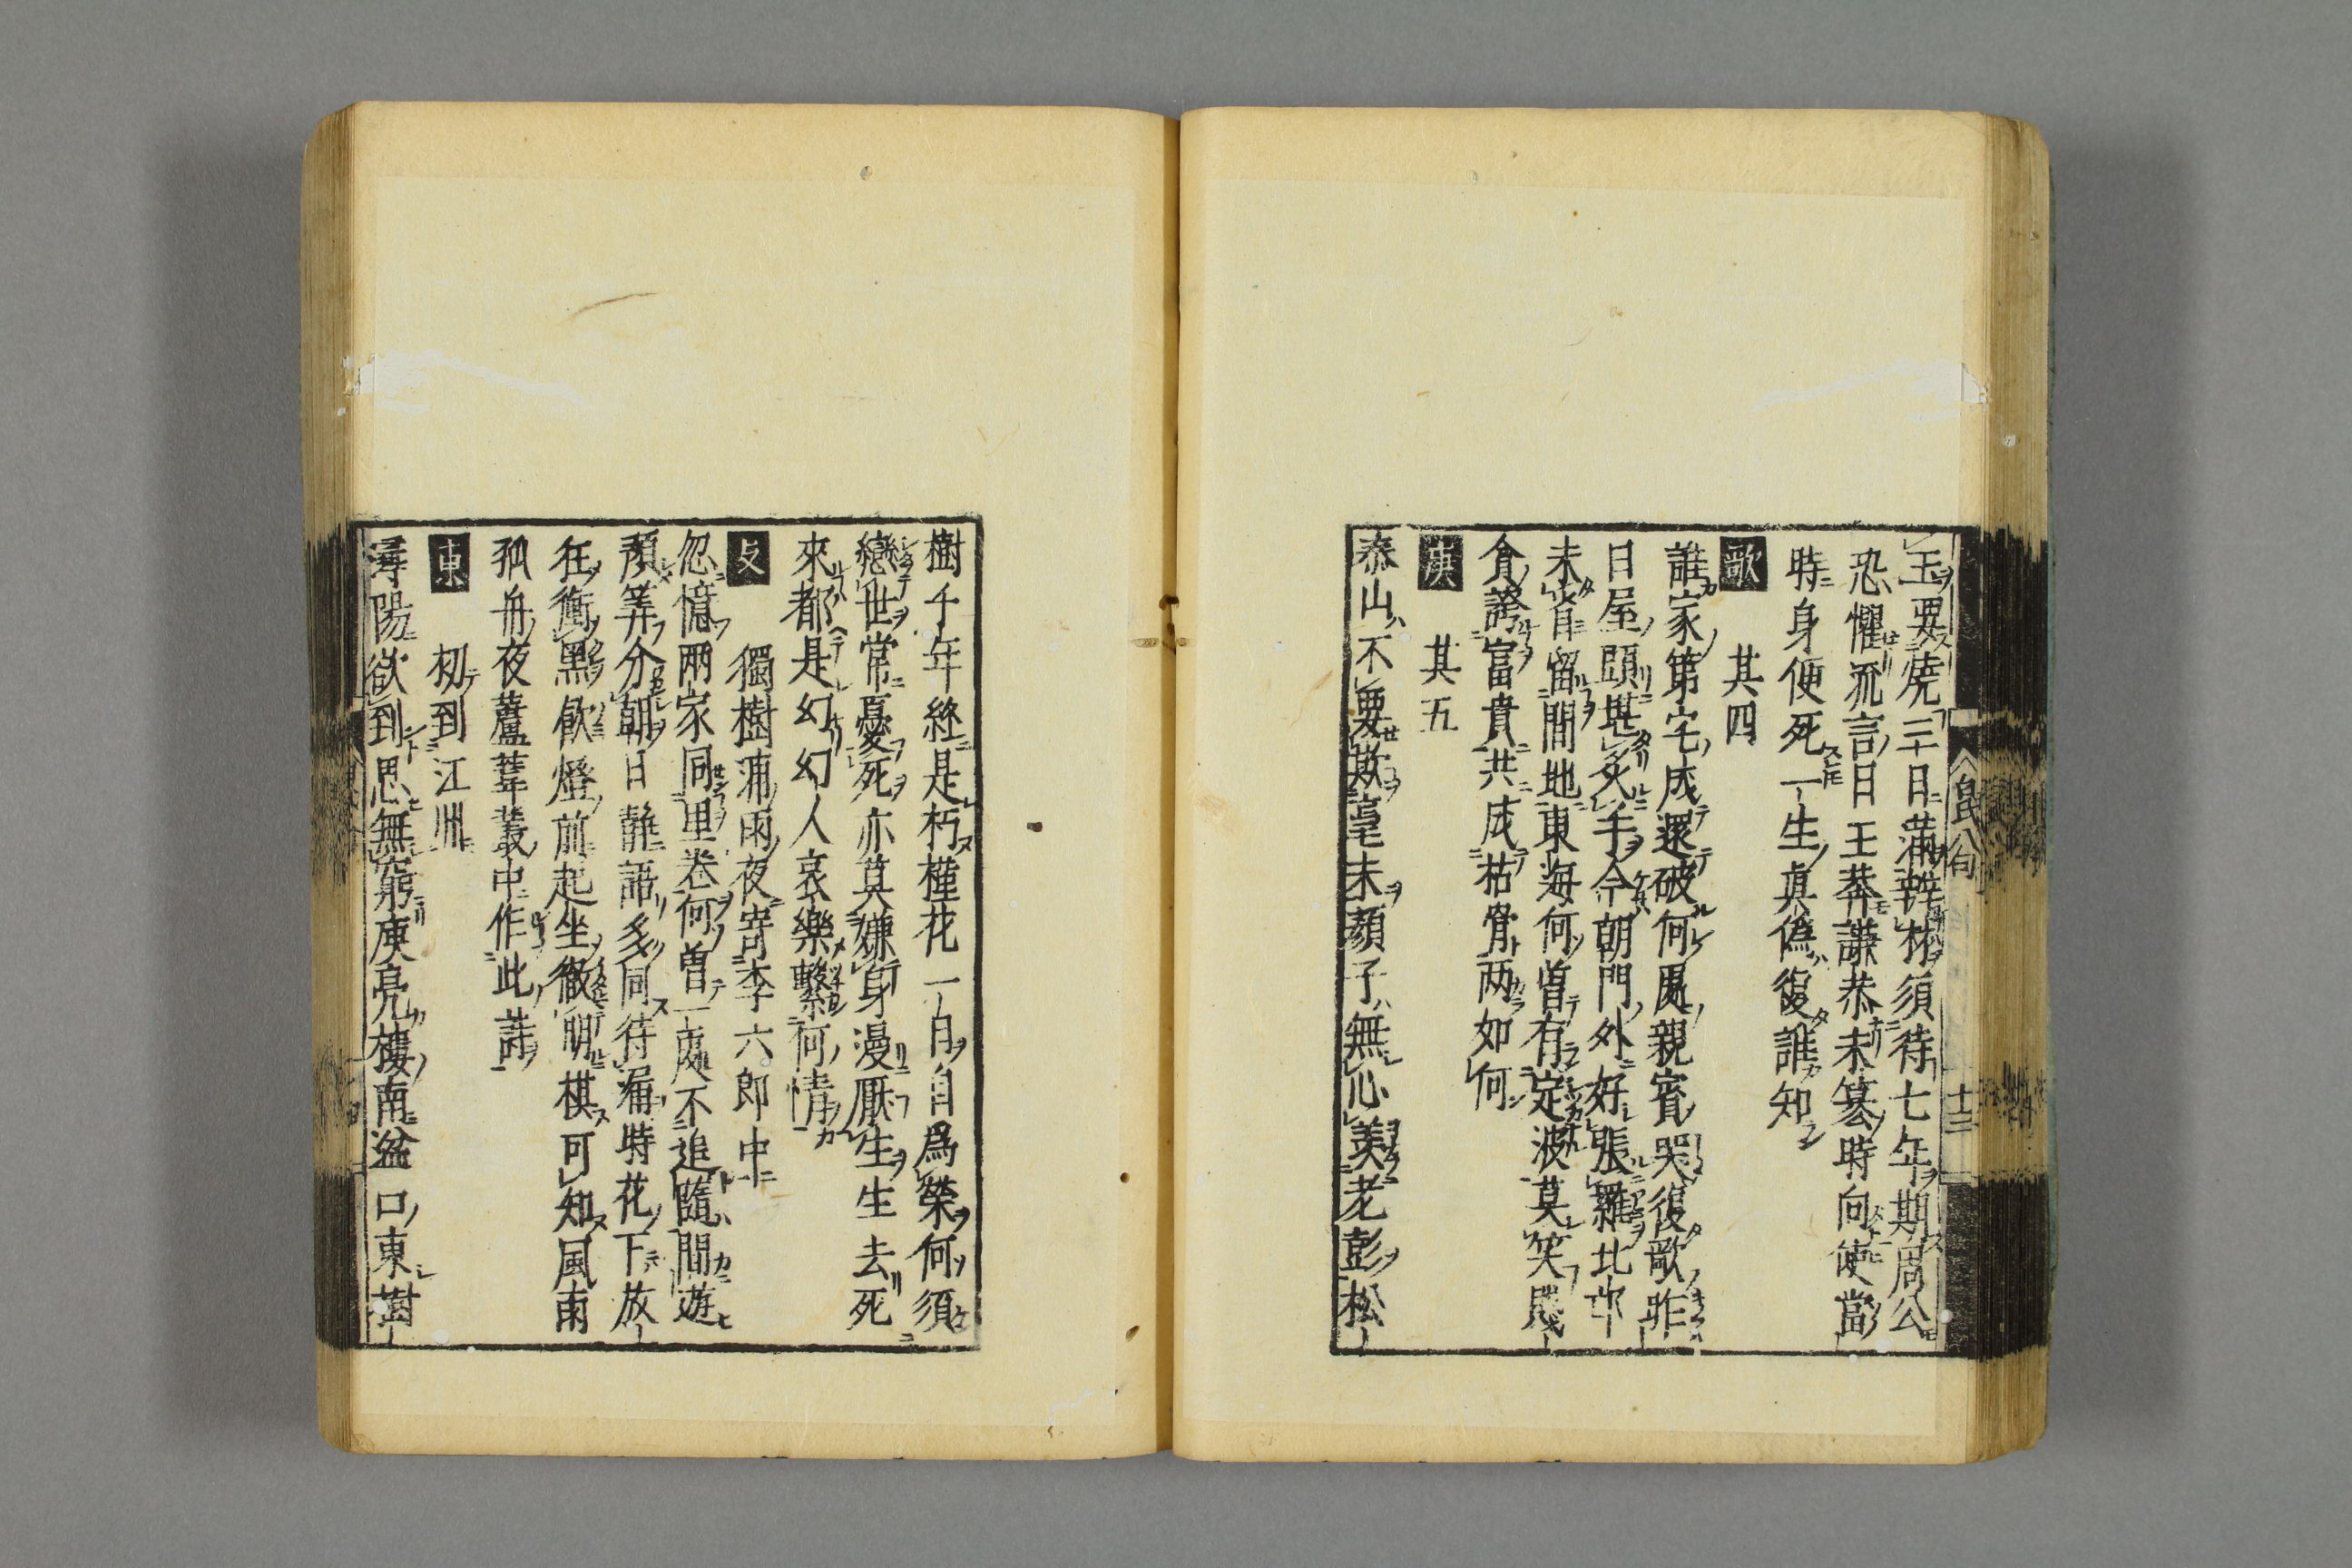 白氏八句
玉要燒三日滿辨材須待七年期周公
恐懼流言日王莽謙恭未篡時向使當
時身便死一生真偽復誰知
歌　其四
誰家第宅成還破何處親賓哭復歌昨
日屋頭堪炙手今朝門外好張羅北邙
未省留間地東海何曾有定波莫笑賤
貪誇富貴共成枯骨两如何
庚　其五
泰山不要欺毫末顏子無心羨老彭松
樹千年終是朽槿花一日自爲榮何須
戀世常憂死亦莫嫌身漫厭生生去死
來都是幻幻人哀樂繫何情
支　獨樹浦雨夜寄李六郎中
忽憶兩家同里巷何曽一處不追隨間遊
預筭分朝日靜語多同待漏時花下放
狂衝黑飲燈前起坐徹明棋可知風雨
孤舟夜蘆葦叢中作此詩
東　初到江州
潯陽欲到思無窮庾亮樓南湓口東樹